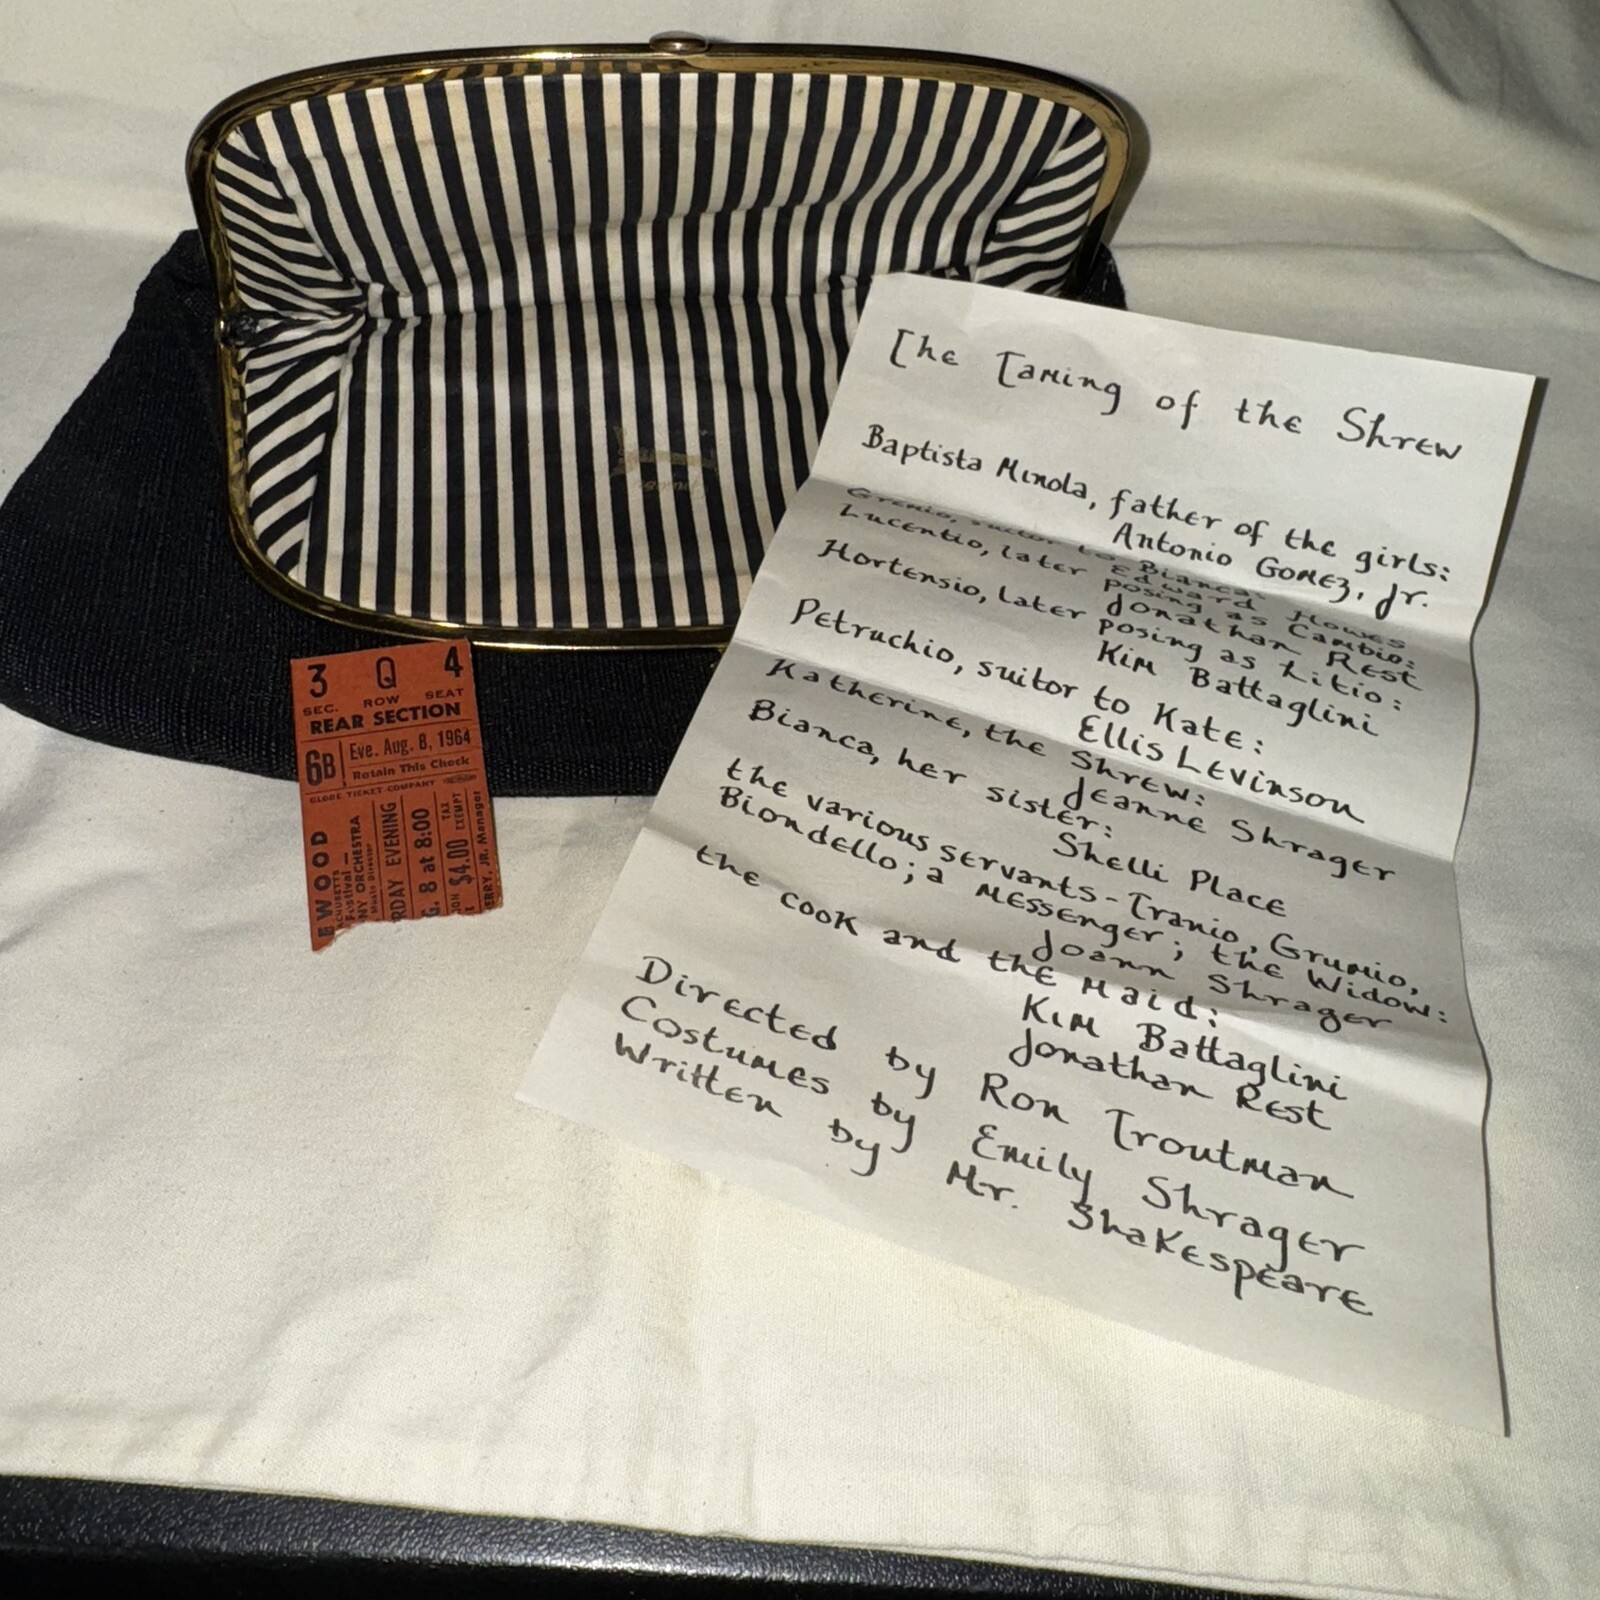 3 Q 4
SEC. ROW SEAT
REAR SECTION
6B
Eve. Aug. 8, 1964
Retain This Check
GLOBE TICKET COMPANY
EWOOD
CHUSETTS
Festival—
NY ORCHESTRA
Music Director
RDAY EVENING
G. 8 at 8:00
ION $4.00 TAX EXEMPT
ERRY, JR. Manager
The Taming of the Shrew
Baptista Minola, father of the girls:
Antonio Gomez, Jr.
Gremio, suitor to Bianca:
Edward Howes
Lucentio, later posing as Cambio:
Jonathan Rest
Hortensio, later posing as Litio:
Kim Battaglini
Petruchio, suitor to Kate:
Ellis Levinson
Katherine, the Shrew:
Jeanne Shrager
Bianca, her sister:
Shelli Place
the various servants-Tranio, Grumio,
Biondello; a messenger; the Widow:
Joann Shrager
the cook and the maid:
Kim Battaglini
Jonathan Rest
Directed by Ron Troutman
Costumes by Emily Shrager
Written by Mr. Shakespeare